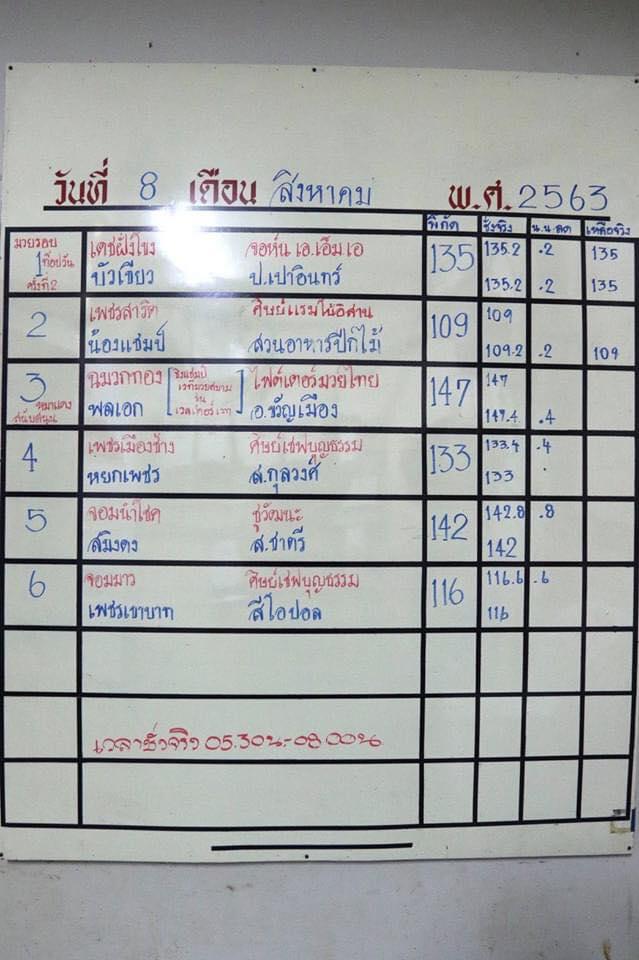 วันที่ 8 เดือน สิงหาคม พ.ศ. 2563
พิกัด ชั่งจริง น.น.ลด เหลือจริง
มวยรอบ
1 ท็อปวัน
ครั้งที่ 2
เดชฝั่งโขง จอห์น เอ.เอ็ม.เอ 135 135.2 .2 135
บัวเขียว ป.เปาอินทร์ 135.2 .2 135
2 เพชรสาริต 109 109
น้องแชมป์ สวนอาหารปีกไม้ 109.2 .2 109
3
สนับสนุน
ฉมวกทอง ชิงแชมป์ เวทีมวยสยาม รุ่น เวลเตอร์เวท ไฟต์เตอร์มวยไทย 147 147
พลเอก อ.ขวัญเมือง 147.4 .4
4 เพชรเมืองช้าง ศิษย์เชฟบุญธรรม 133 133.4 .4
หยกเพชร ส.กุลวงศ์ 133
5 จอมนำโชค ชูวัฒนะ 142 142.8 .8
สมิงดง ส.ชาตรี 142
6 จอมมาว ศิษย์เชฟบุญธรรม 116 116.6 .6
เพชรเขาบาท สีโอปอล 116
เวลาชั่งจริง 05.30น.-08.00น